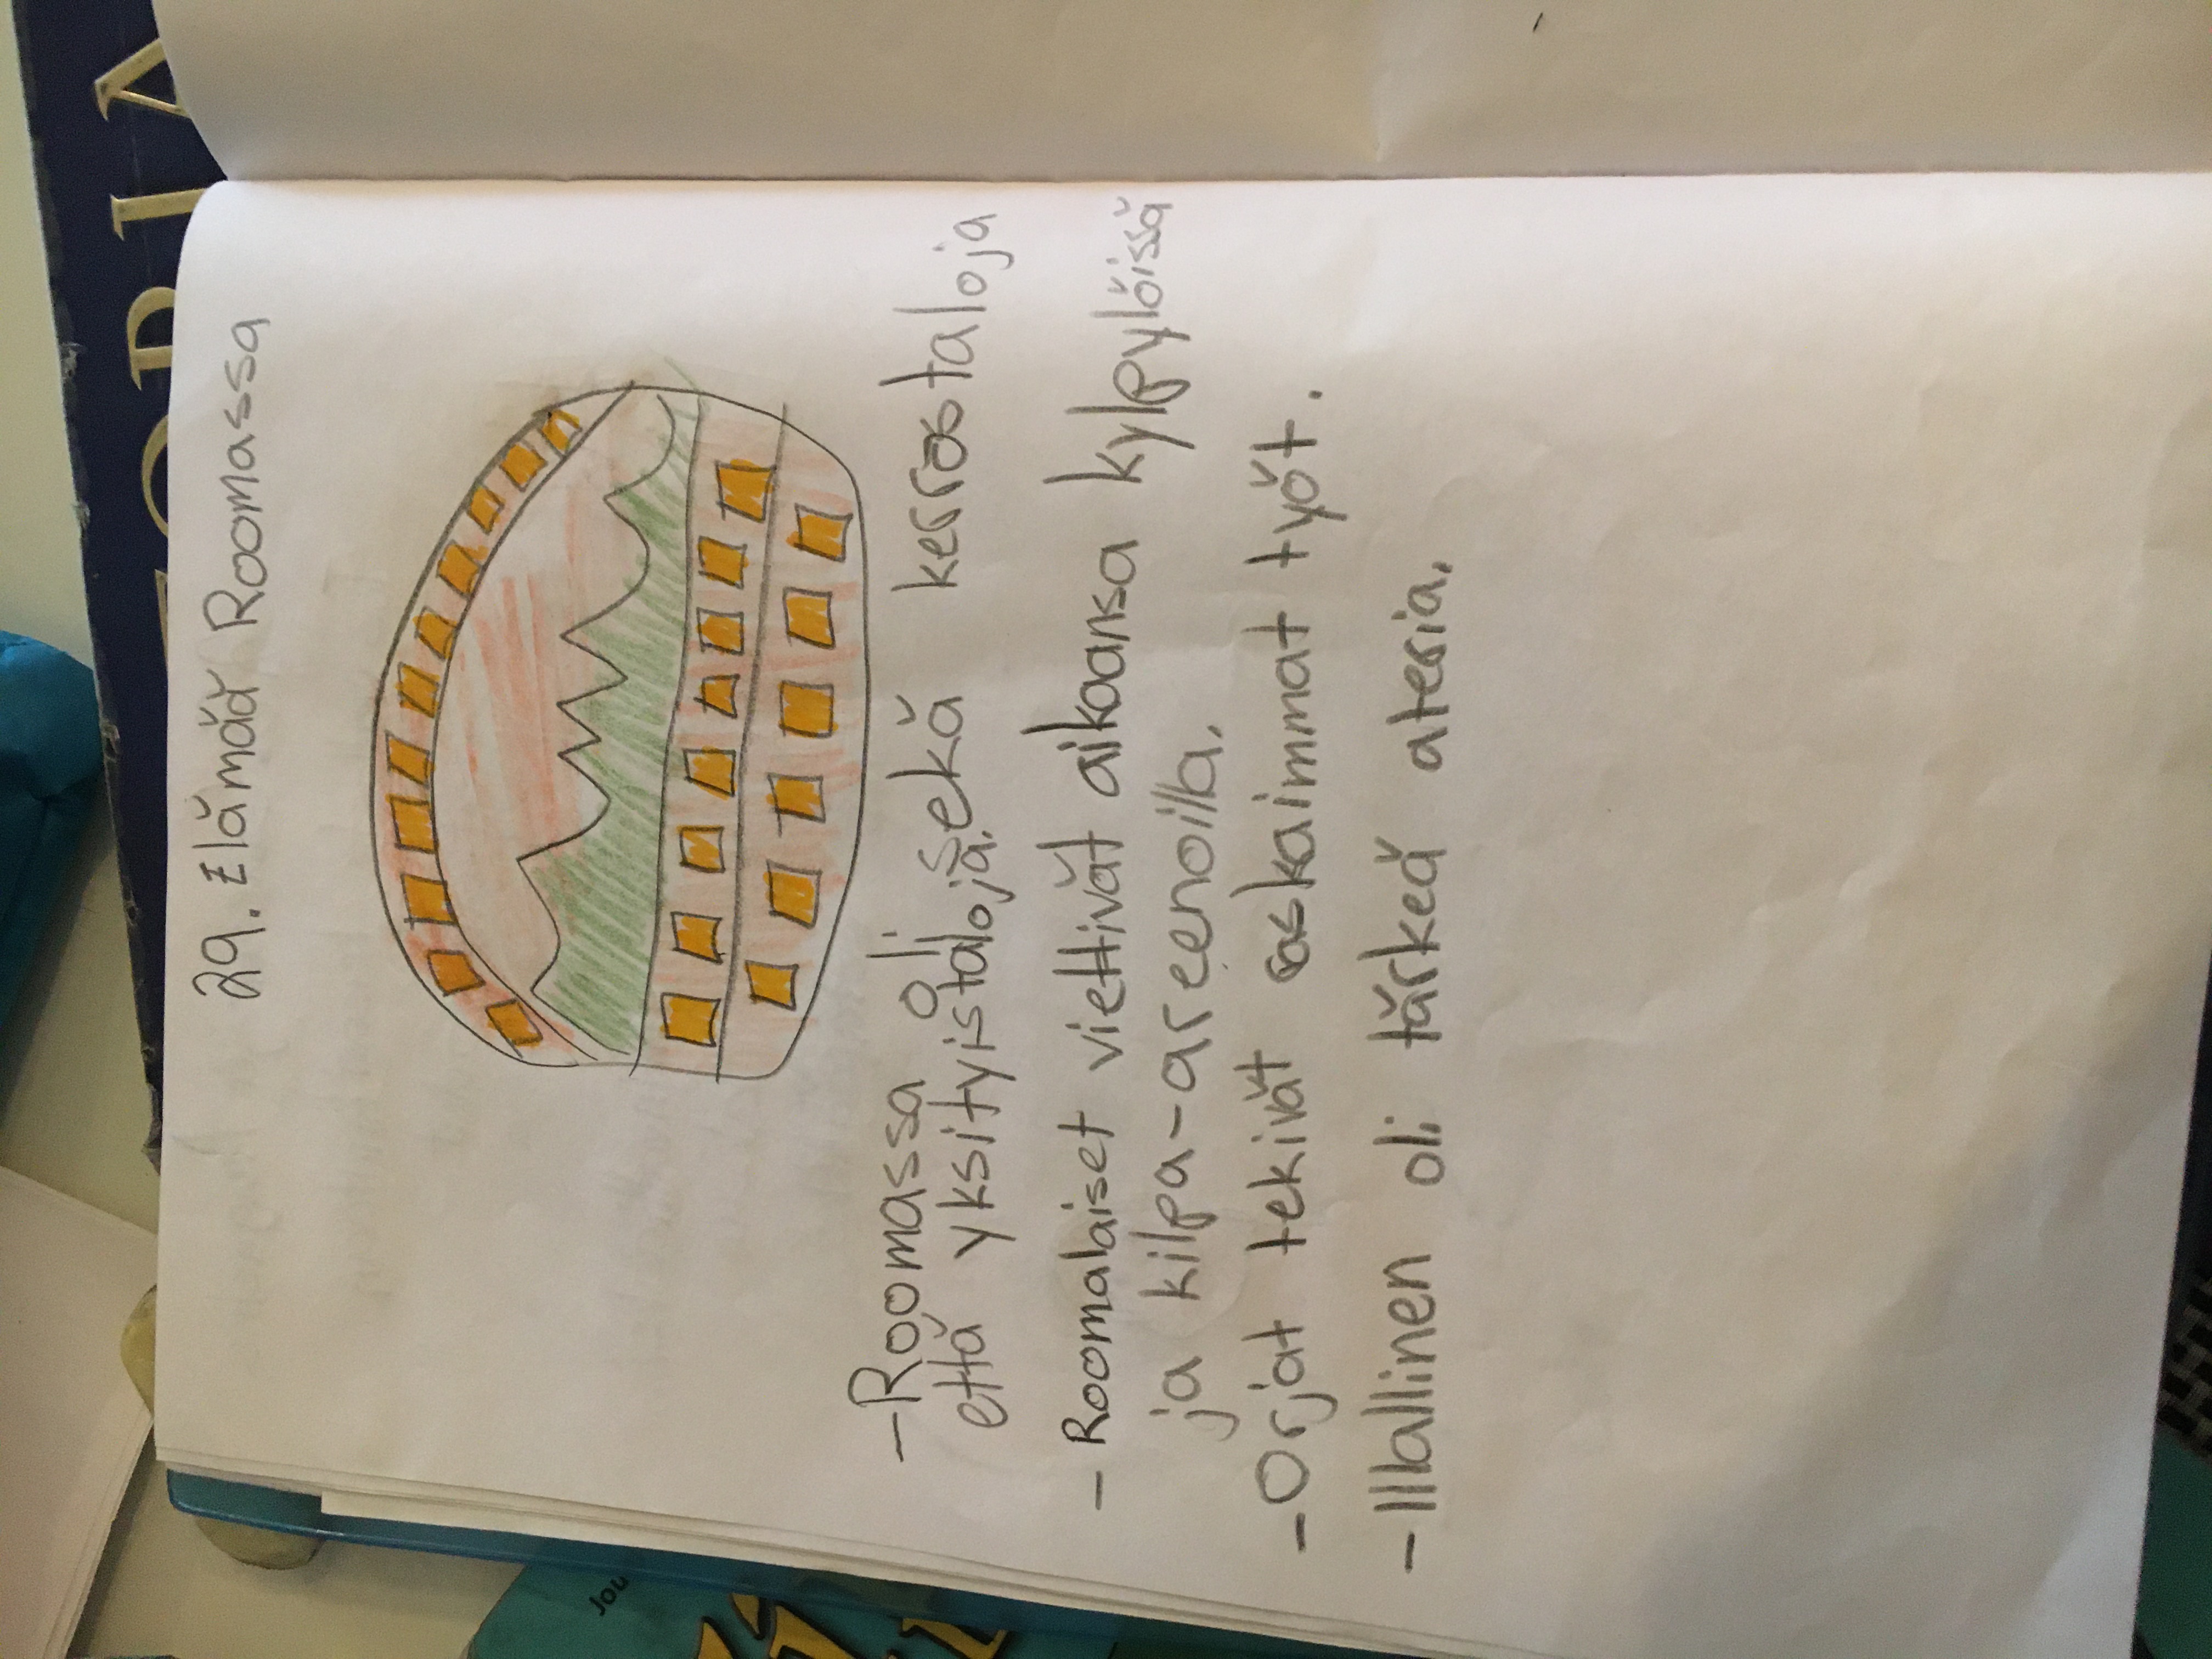 29. Elämää Roomassa
-Roomassa oli sekä kerrostaloja
että yksityistaloja.
- Roomalaiset viettivät aikaansa kylpylöissä
ja kilpa-areenoilla.
-Orjat tekivät raskaimmat työt.
-Illallinen oli tärkeä ateria.
Jou